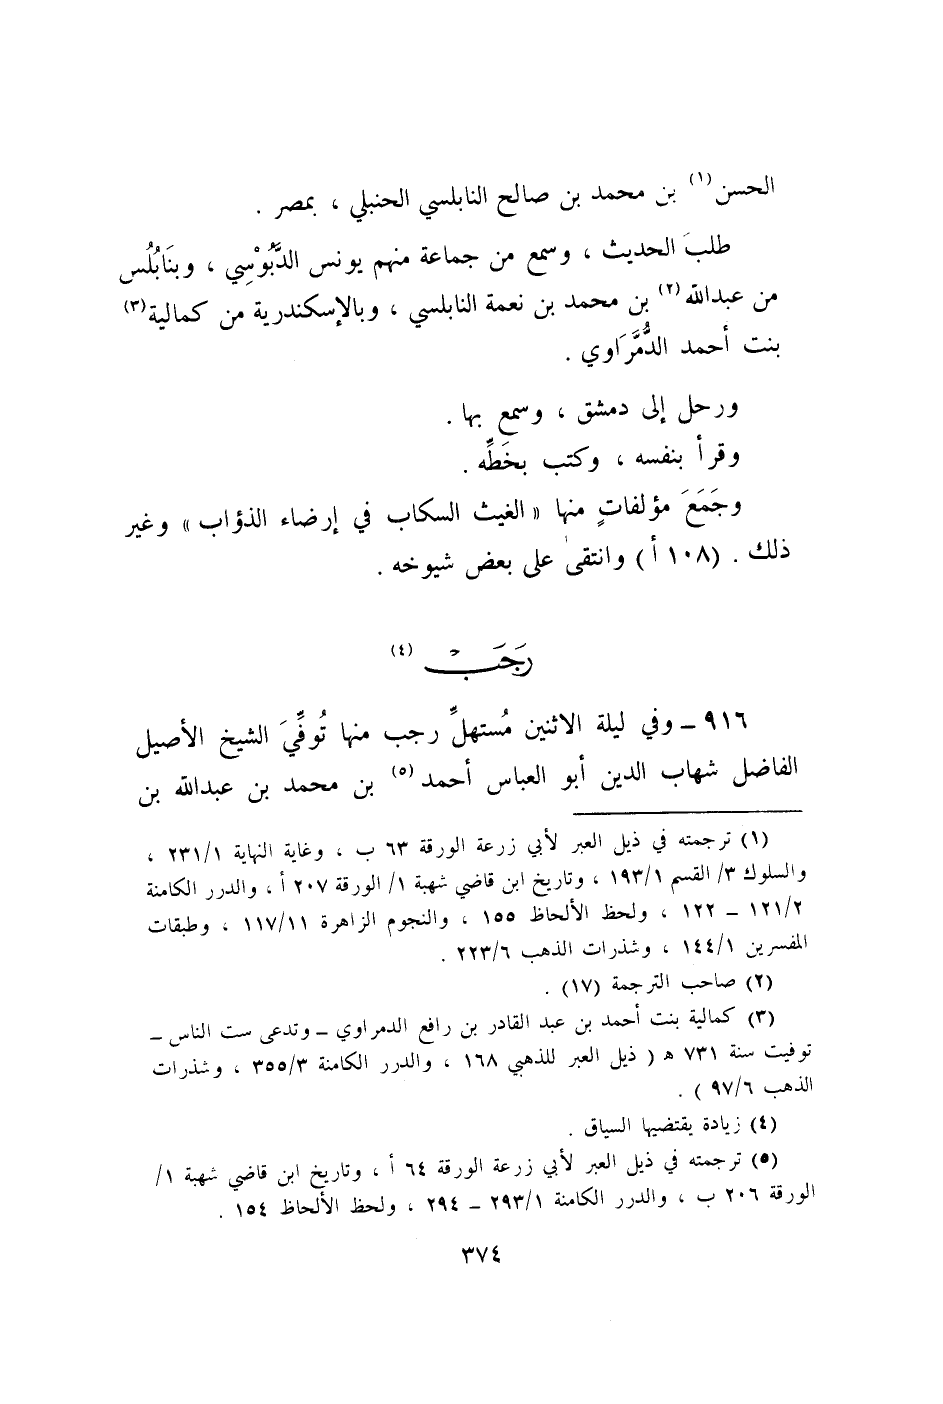 الحسن(١) بن محمد بن صالح النابلسي الحنبلي ، بمصر .
طلبَ الحديث ، وسمع من جماعة منهم يونس الدَّبُوْسِي ، وبنَابُلُس
من عبدالله(٢) بن محمد بن نعمة النابلسي ، وبالإسكندرية من كمالية(٣)
بنت أحمد الدُّمَّرَاوي .
ورحل إلى دمشق ، وسمع بها .
وقرأ بنفسه ، وكتب بخَطِّه .
وجَمَعَ مؤلفاتٍ منها « الغيث السكاب في إرضاء الذؤاب » وغير
ذلك . (١٠٨ أ) وانتقىٰ على بعض شيوخه .
رَجَب (٤)
٩١٦ ــ وفي ليلة الاثنين مُستهلِّ رجب منها تُوفِّيَ الشيخ الأصيل
الفاضل شهاب الدين أبو العباس أحمد(٥) بن محمد بن عبدالله بن
(١) ترجمته في ذيل العبر لأبي زرعة الورقة ٦٣ ب ، وغاية النهاية ٢٣١/١ ،
والسلوك ٣/ القسم ١٩٣/١ ، وتاريخ ابن قاضي شهبة ١/ الورقة ٢٠٧ أ ، والدرر الكامنة
١٢١/٢ ــ ١٢٢ ، ولحظ الألحاظ ١٥٥ ، والنجوم الزاهرة ١١٧/١١ ، وطبقات
المفسرين ١٤٤/١ ، وشذرات الذهب ٢٢٣/٦ .
(٢) صاحب الترجمة (١٧) .
(٣) كمالية بنت أحمد بن عبد القادر بن رافع الدمراوي ــ وتدعى ست الناس ــ
توفيت سنة ٧٣١ ه ( ذيل العبر للذهبي ١٦٨ ، والدرر الكامنة ٣٥٥/٣ ، وشذرات
الذهب ٩٧/٦ ) .
(٤) زيادة يقتضيها السياق .
(٥) ترجمته في ذيل العبر لأبي زرعة الورقة ٦٤ أ ، وتاريخ ابن قاضي شهبة ١/
الورقة ٢٠٦ ب ، والدرر الكامنة ٢٩٣/١ ــ ٢٩٤ ، ولحظ الألحاظ ١٥٤ .
٣٧٤